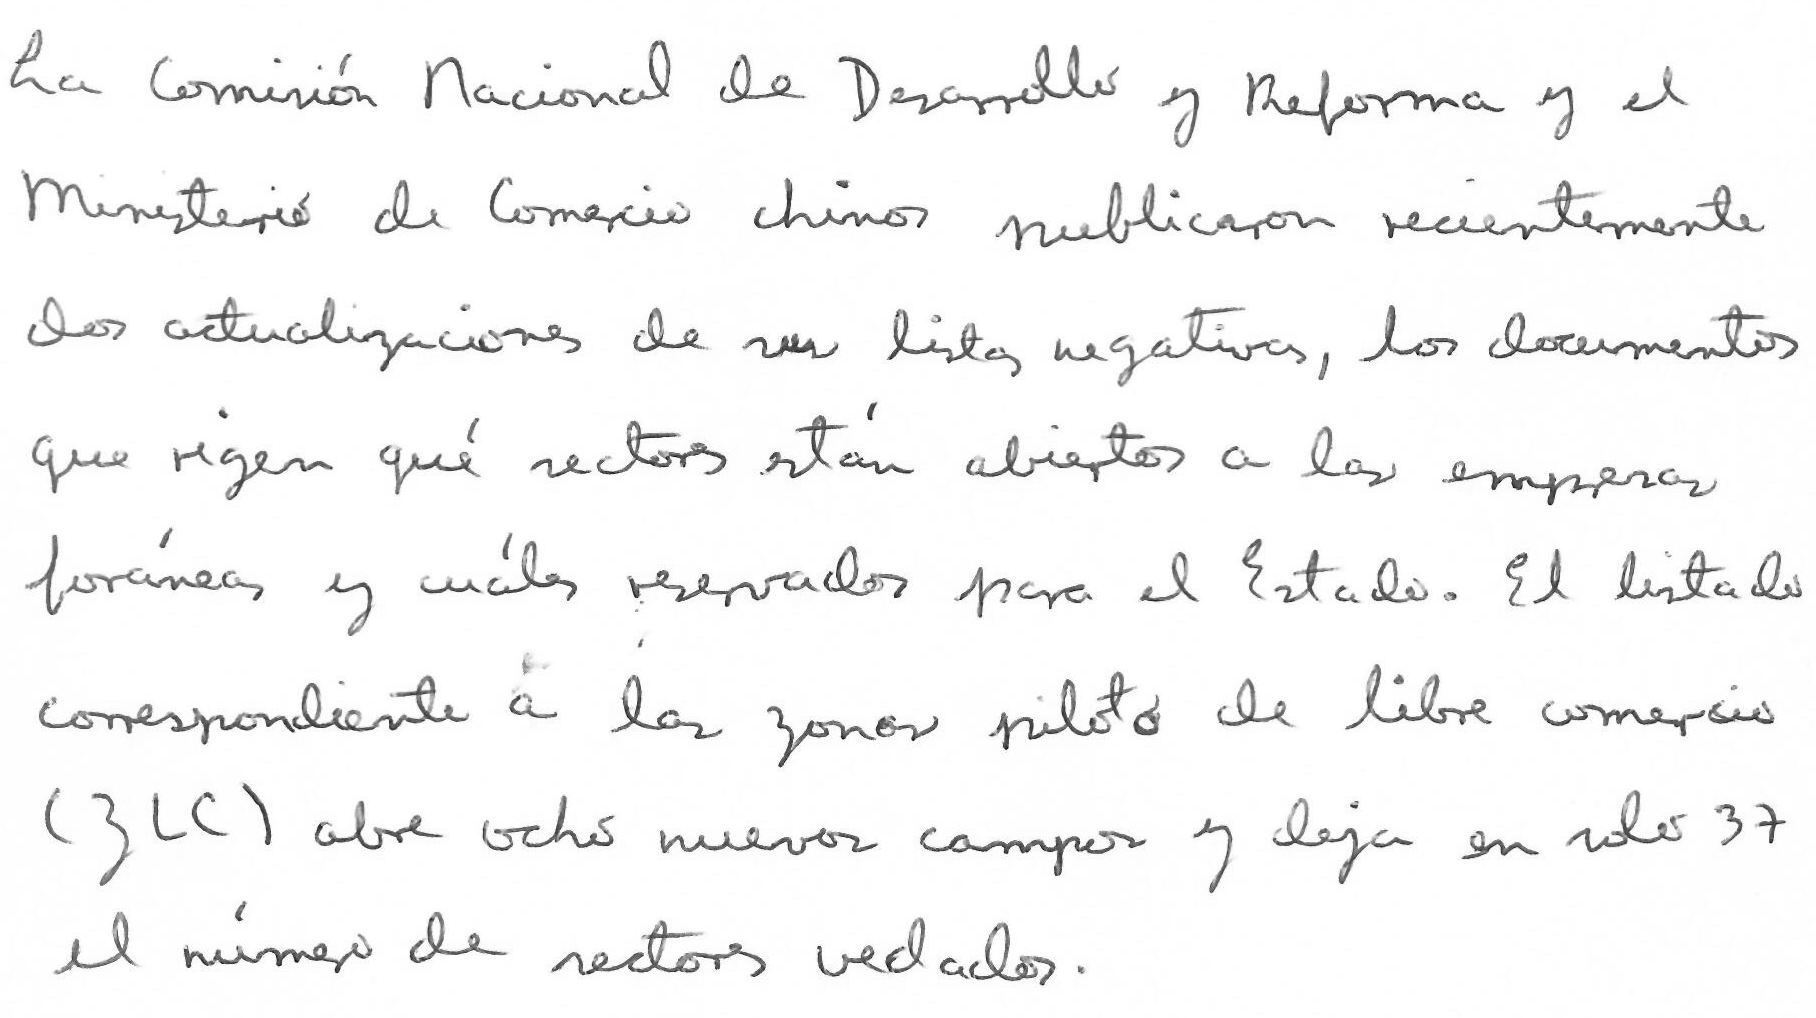 La Comisión Nacional de Desarrollo y Reforma y el
Ministerio de Comercio chinos publicaron recientemente
dos actualizaciones de sus listas negativas, los documentos
que rigen qué sectores están abiertos a las empresas
foráneas y cuáles reservados para el Estado. El listado
correspondiente a las zonas piloto de libre comercio
(ZLC) abre ocho nuevos campos y deja en solo 37
el número de sectores vedados.